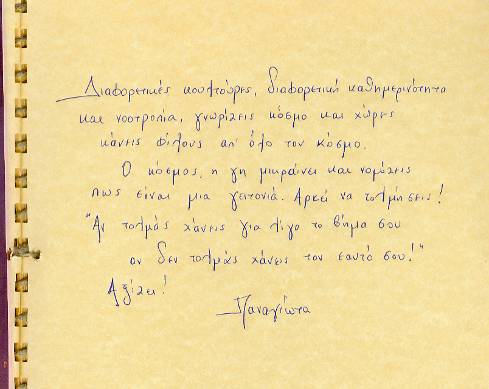 Διαφορετικές κουλτούρες, διαφορετική καθημερινότητα
και νοοτροπία, γνωρίζεις κόσμο και χώρες
κάνεις φίλους απ' όλο τον κόσμο.
Ο κόσμος, η γη μικραίνει και νομίζεις
πως είναι μια γειτονιά. Αρκεί να τολμήσεις!
"Αν τολμάς χάνεις για λίγο το βήμα σου
αν δεν τολμάς χάνεις τον εαυτό σου!"
Αξίζει!
Παναγιώτα